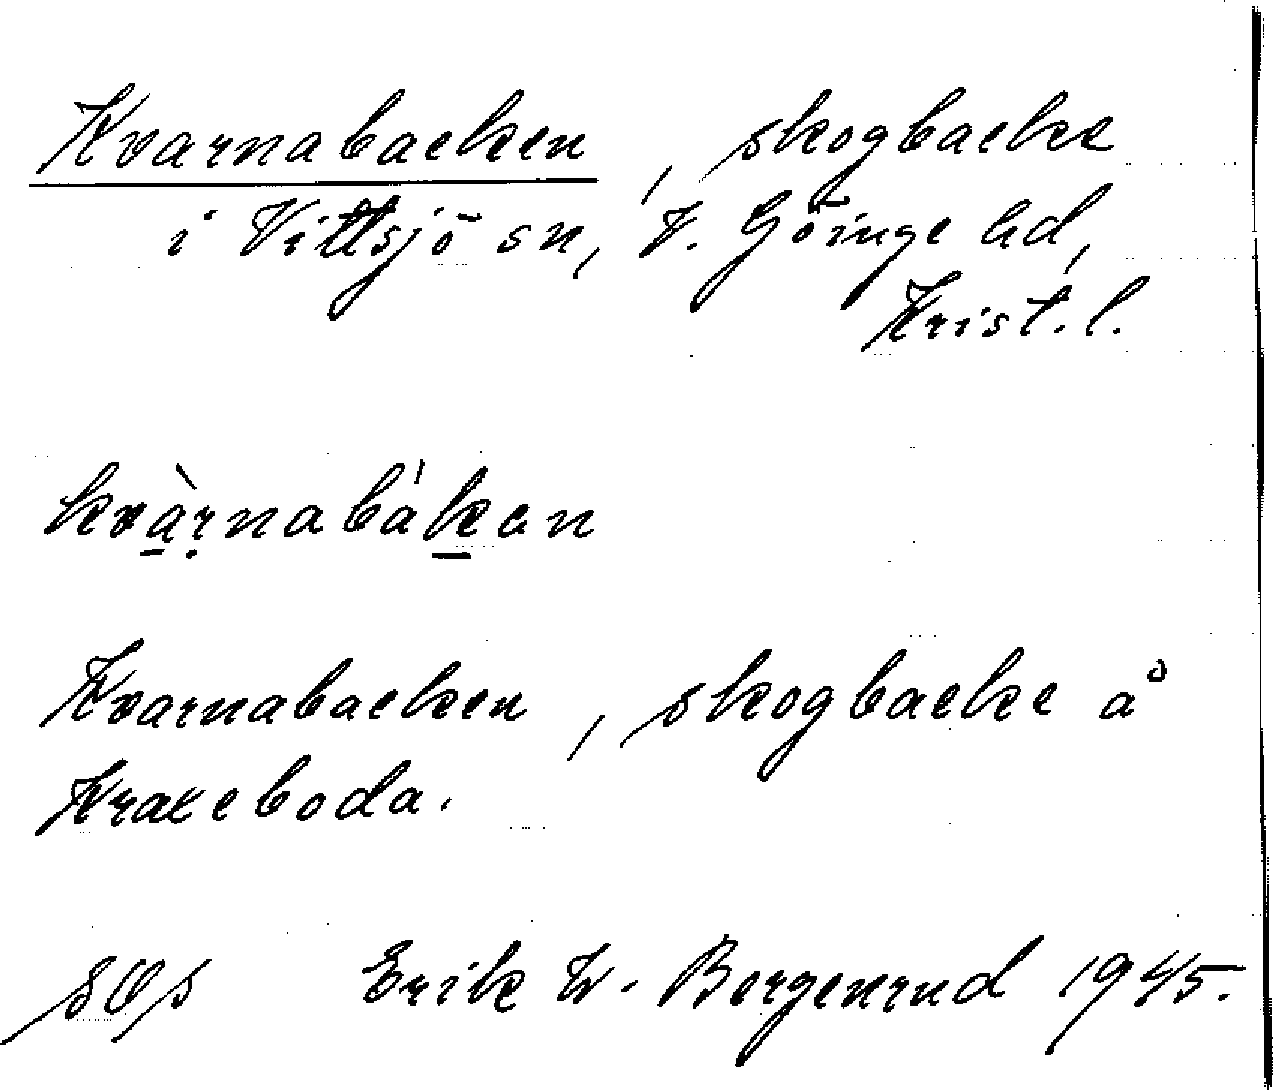 Kvarnabacken, skogbacke
i Vittsjö sn, V. Göinge hd,
Krist. l.
kvàrnabákan
Kvarnabacken, skogbacke å
Kraxeboda.
Erik W. Bergenrud 1945.